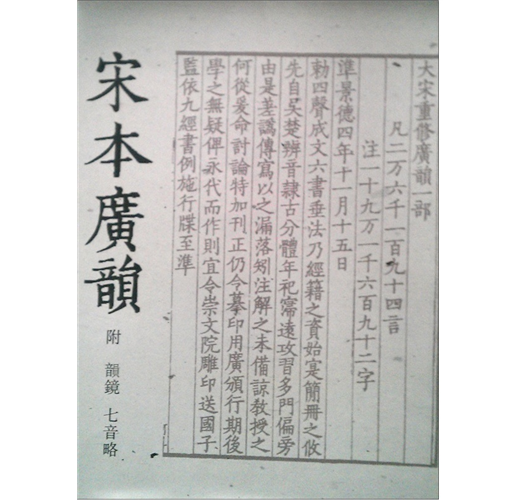 大宋重修廣韻一部
凡二万六千一百九十四言
注一十九万一千六百九十二字
準景德四年十一月十五日
勑四聲成文六書垂法乃經籍之資始寔簡冊之攸
先自吳楚辨音隷古分體年祀寖遠攻習多門偏旁
由是差譌傳寫以之漏落矧注解之未備諒教授之
何從爰命討論特加刊正仍令摹印用廣頒行期後
學之無疑俾永代而作則宜令崇文院雕印送國子
監依九經書例施行牒至準
宋本廣韻
附 韻鏡 七音略